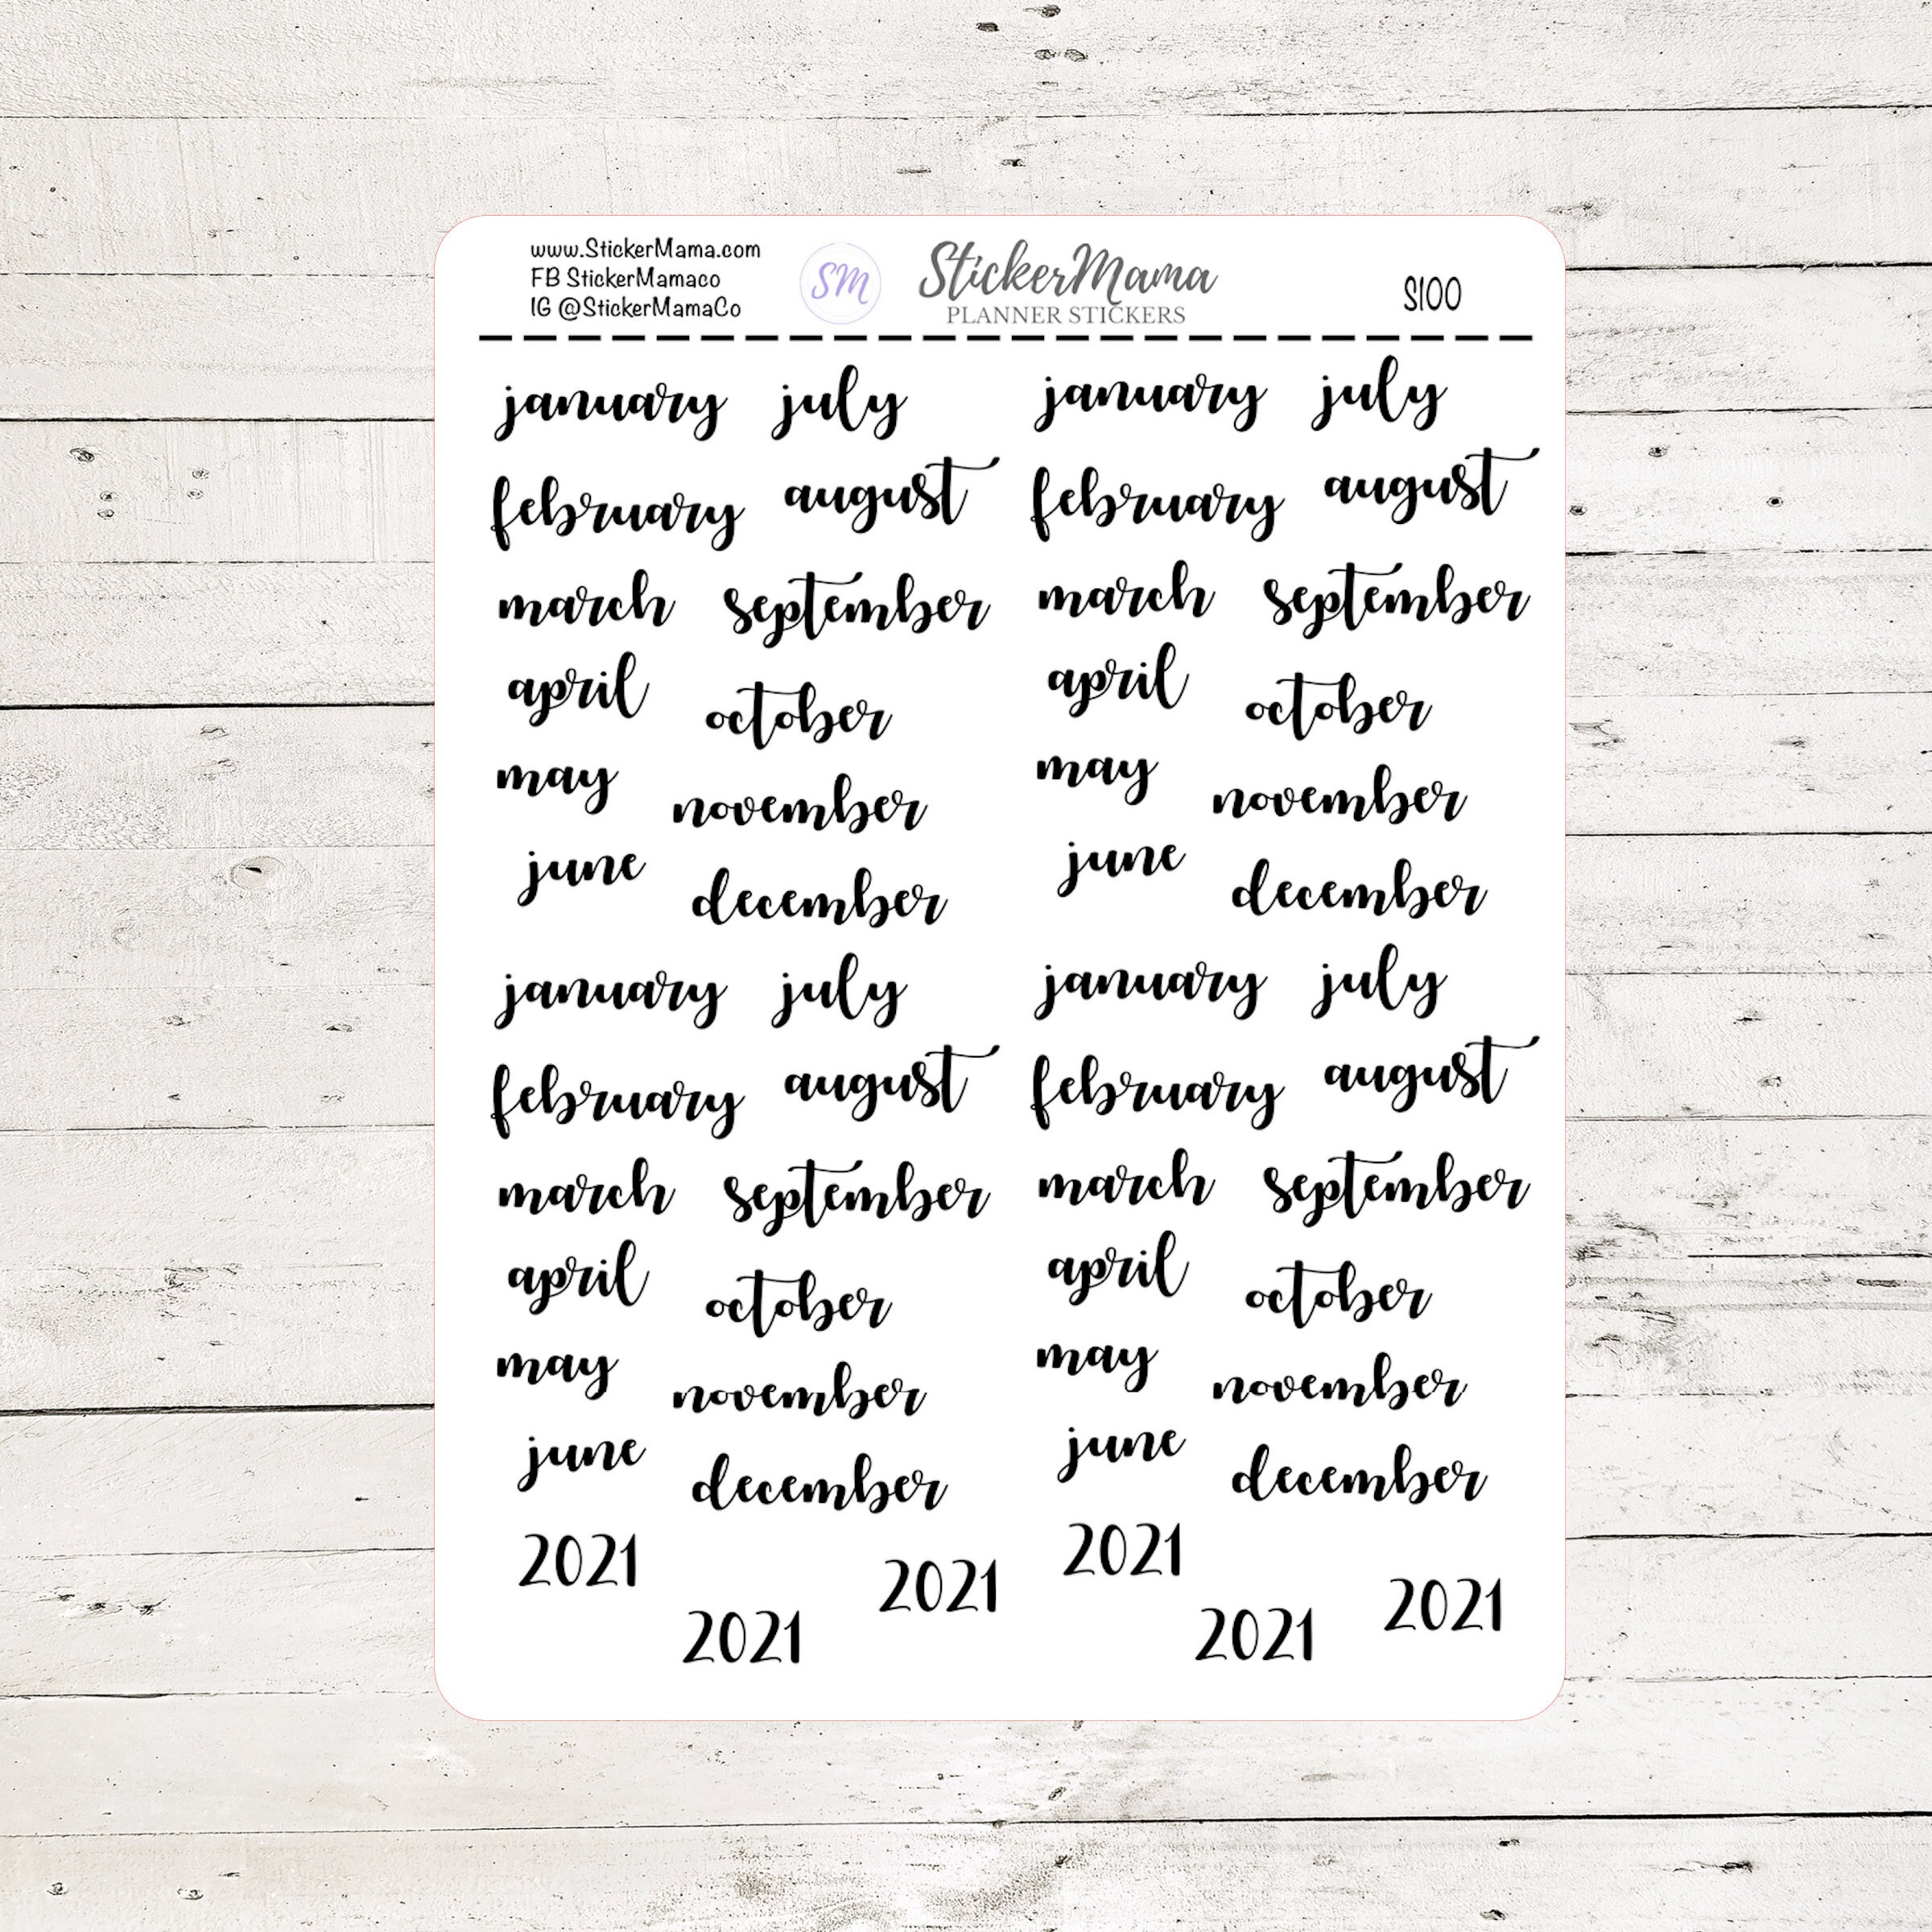 www.StickerMama.com
FB StickerMamaco
IG @StickerMamaCo
SM
StickerMama
PLANNER STICKERS
S100
january july january july
february august february august
march september march september
april october april october
may november may november
june december june december
january july january july
february august february august
march september march september
april october april october
may november may november
june december june december
2021 2021 2021 2021 2021 2021